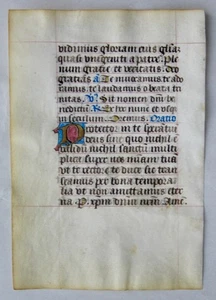 vidimus gloriam eius gl'iā
quasi unigeniti a patre. ple
num gratie et veritatis. deo
gratias. Te invocamus te ado
ramus te laudamus o beata tri
nitas. V. Sit nomen dn̄i be
nedictū. Ex hoc nunc et usq3
in seculum. Oremus. Oratio
Protector in te speratiū
deus sine quo nichil ē
validū nichil sanctū multi
plica super nos miam tuā
ut te rectore te duce sic tran
seamus per bona tempora
lia ut non amittamus eter
na. P. xpm dnm nrm Amē.